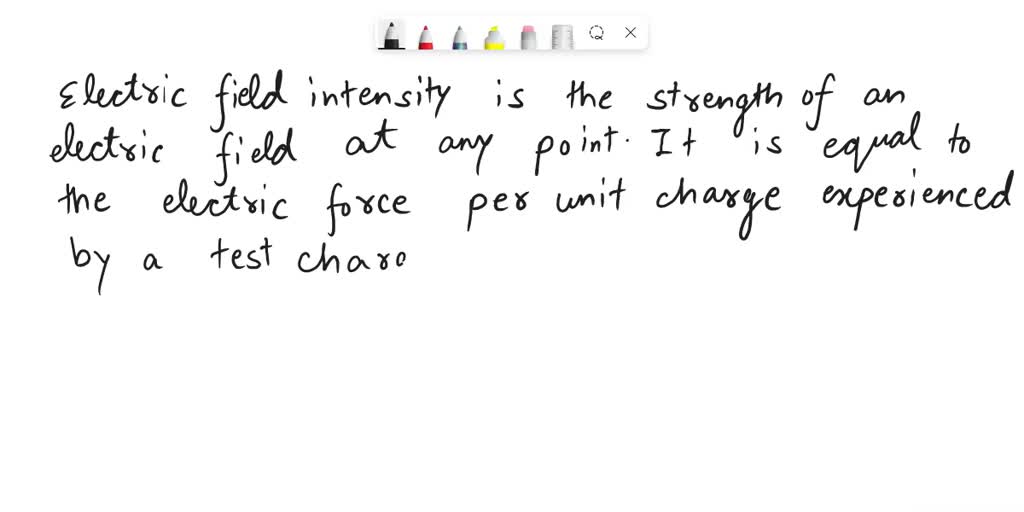 Electric field intensity is the strength of an
electric field at any point. It is equal to
the electric force per unit charge experienced
by a test charg